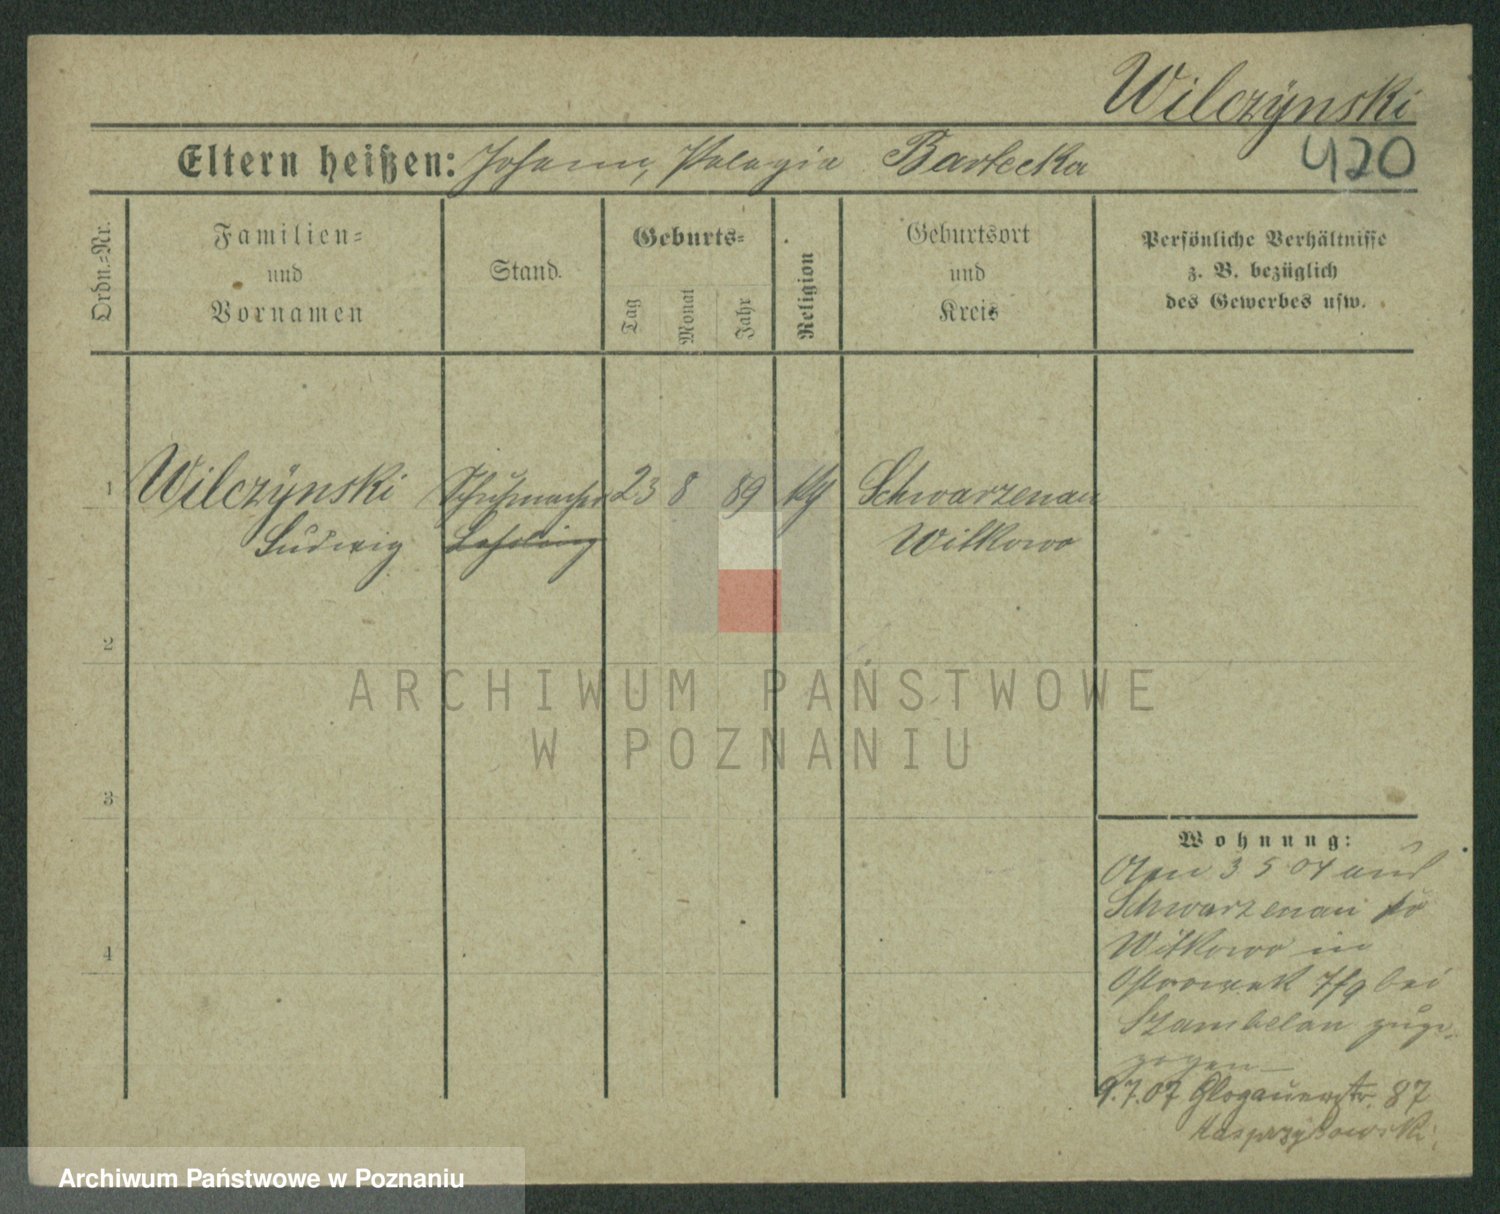 Wilczÿnski
420
Eltern heißen: Johann, Pelagia Bartecka
Ordn.-Nr.
Familien-
und
Vornamen
Stand.
Geburts-
Tag
Monat
Jahr
Religion
Geburtsort
und
Kreis
Persönliche Verhältnisse
z. B. bezüglich
des Gewerbes usw.
1 Wilczÿnski Schuhmacher 23 8 89 Schwarzenau
Ludwig Lehrling Witkowo
2
3
4
Wohnung:
3 5 04 aus
Schwarzenau
Witkowo in
Ostrowek 7/9 bei
Szambelan zuge-
zogen
9.7.07 Glogauerstr. 87
Kasprzykowski
ARCHIWUM PAŃSTWOWE
W POZNANIU
Archiwum Państwowe w Poznaniu